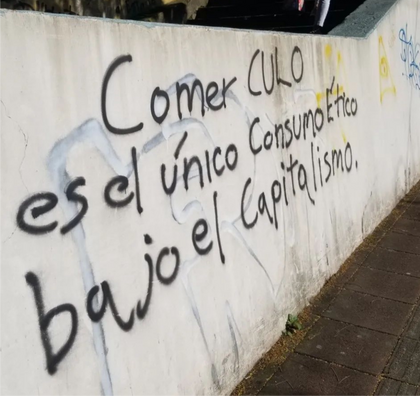 Comer CULO
es el único Consumo Ético
bajo el Capitalismo.